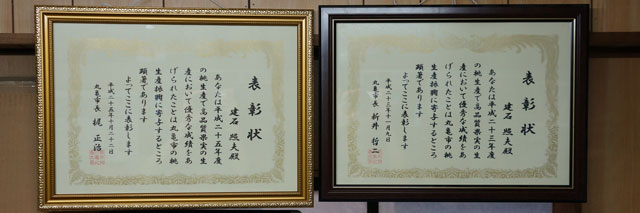 表彰状
建石 照夫殿
あなたは平成二十五年度
の桃生産で高品質果実の生
産において優秀な成績をあ
げられたことは丸亀市の桃
生産振興に寄与するところ
顕著であります
よってここに表彰します
平成二十五年十月二十二日
丸亀市長 梶 正治
表彰状
建石 照夫殿
あなたは平成二十三年度
の桃生産で高品質果実の生
産において優秀な成績をあ
げられたことは丸亀市の桃
生産振興に寄与するところ
顕著であります
よってここに表彰します
平成二十三年十一月九日
丸亀市長 新井 哲二